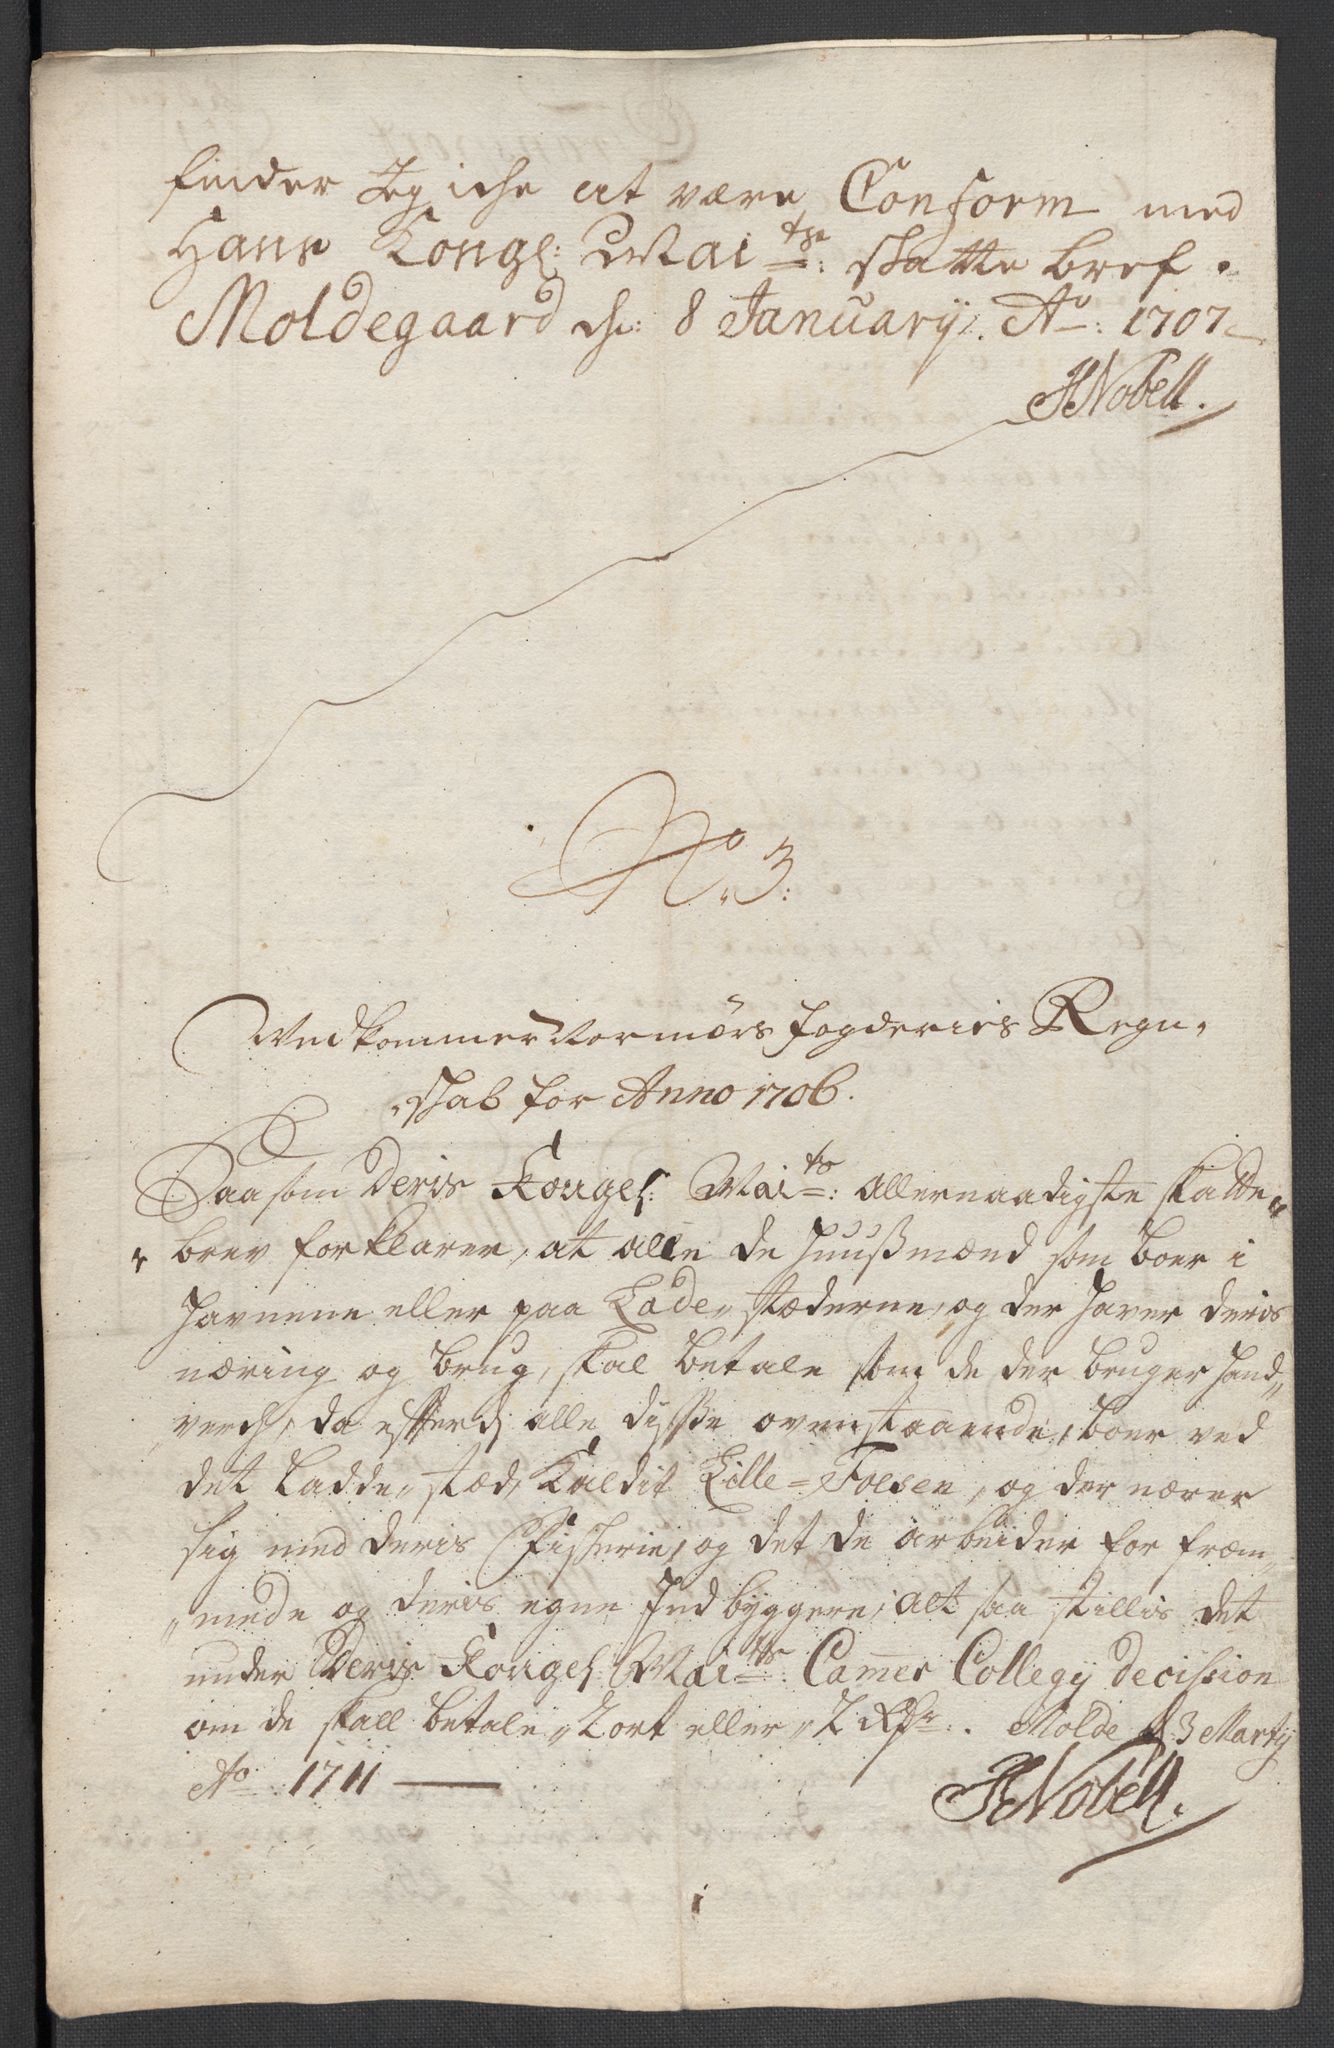 finder Jeg iche at være Conform med
Hans Kongl: Mai^ts: skatte bref.
Moldegaard d: 8 January: A^o: 1707
HNobell.
N^o. 3:
Vedkommer Normørs fogderies Regn,
skab for Anno 1706.
Saasom Deris Kongel: Mai^ts: allernaadigste skatte
brev forklarer, at alle de huusmænd som boer i
havnene eller paa Lade, stæderne, og der haver deris
næring og brug, skal betale som de der bruger hand,,
verch, da efterdj alle disse ovenstaaende, boer ved
det Ladde, stæd, Kaldit Lille=Foesen, og der nærer
sig med deris Fischerie, og det de arbeider for fræm,,
mede og deris egne Indbyggere, alt saa stillis det
under Deris Kongel: Mai^ts: Cam̄er Collegij Decission
om de skall betale, 2 ort eller, 2 Rdr: . Molde d 3 Martij
A^o: 1711
HNobell.